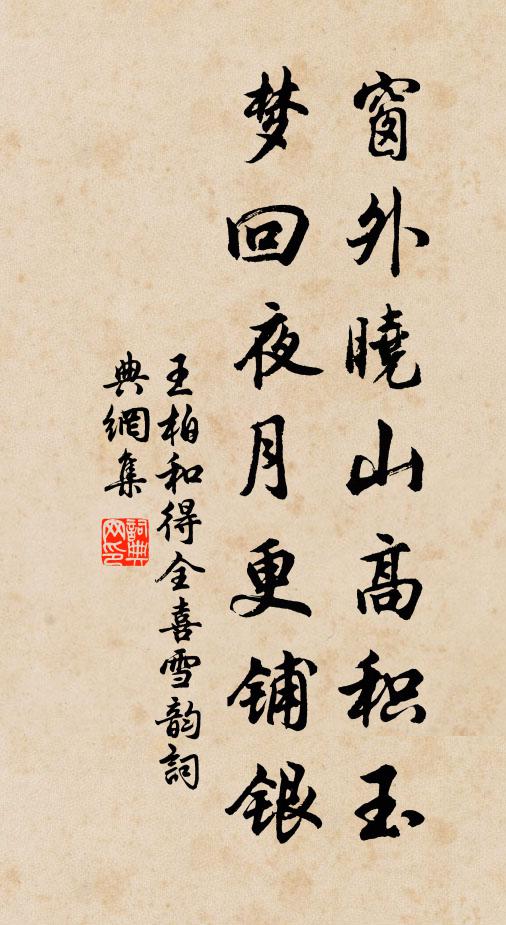 窗外曉山高积玉
梦回夜月更铺银
王柏和得全喜雪韵詞
典網集
詞典网印